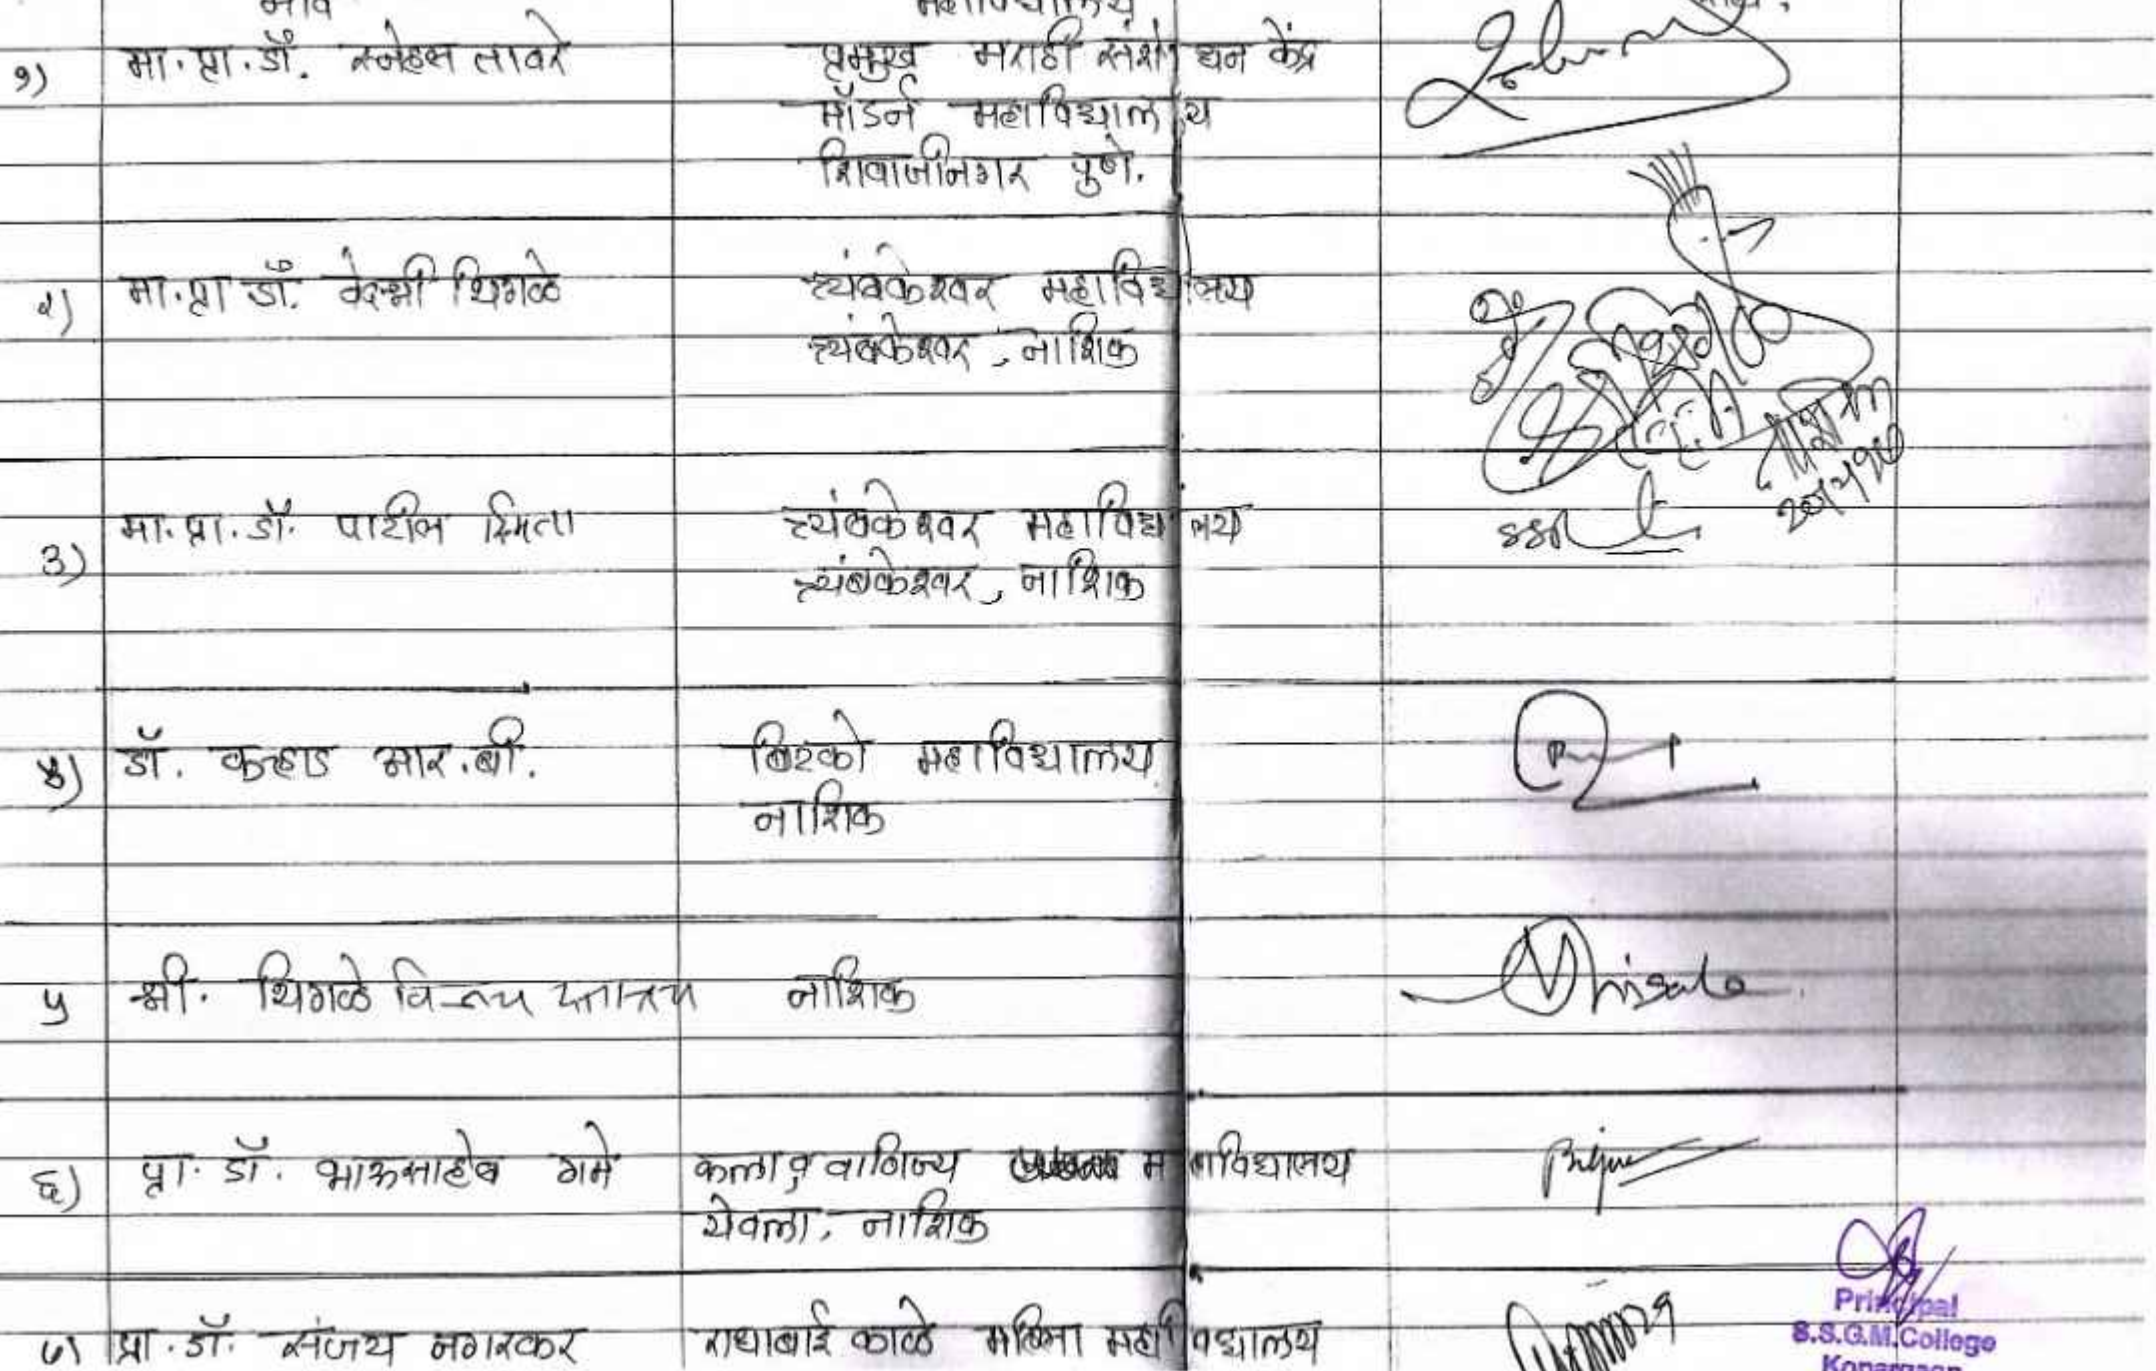 नाव महाविद्यालय
१) मा.प्रा.डॉ. स्नेहल तावरे प्रमुख मराठी संशोधन केंद्र
मॉडर्न महाविद्यालय
शिवाजीनगर पुणे.
२) मा.प्रा डॉ. वेदश्री थिगळे त्र्यंबकेश्वर महाविद्यालय
त्र्यंबकेश्वर, नाशिक
३) मा.प्रा.डॉ. पाटील स्मिता त्र्यंबकेश्वर महाविद्यालय
त्र्यंबकेश्वर, नाशिक
४) डॉ. कऱ्हाड आर.बी. बिटको महाविद्यालय
नाशिक
५ श्री. थिगळे विनय दत्तात्रय नाशिक
६) प्रा. डॉ. भाऊसाहेब गमे कला व वाणिज्य महाविद्यालय
येवला, नाशिक
७) प्रा.डॉ. संजय नगरकर राधाबाई काळे महिला महाविद्यालय
Principal
S.S.G.M.College
Kopargaon